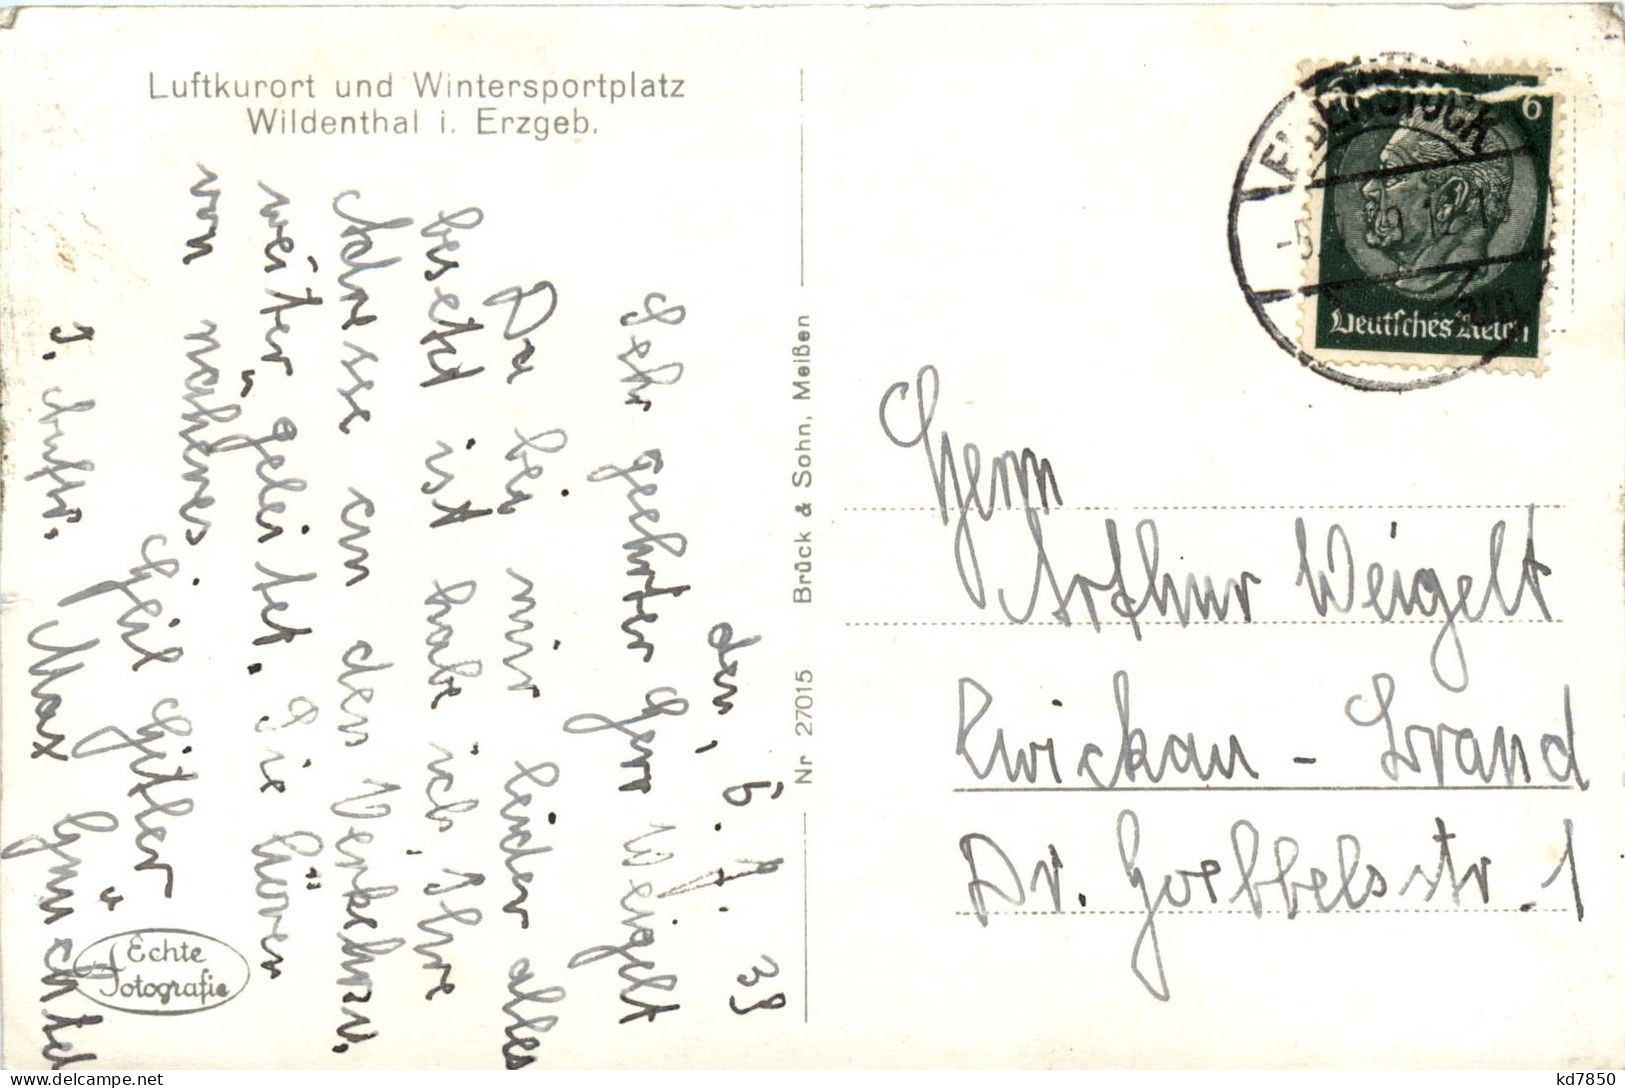 Luftkurort und Wintersportplatz
Wildenthal i. Erzgeb.
den, 6. 1. 39
Sehr geehrter Herr Weigelt
Da bei mir leider alles
besetzt ist habe ich, Ihre
Adresse an den Verkehrsv.
weiter geleitet. Sie hören
von nähres
Heil Hitler
J. Auftr.
Max Günthel
Nr 27015 Brück & Sohn, Meißen
Echte
Fotografie
6
Deutsches Reich
EIBENSTOCK
Herrn
Arthur Weigelt
Zwickau - Brand
Dr. Goebbelsstr. 1
kd7850